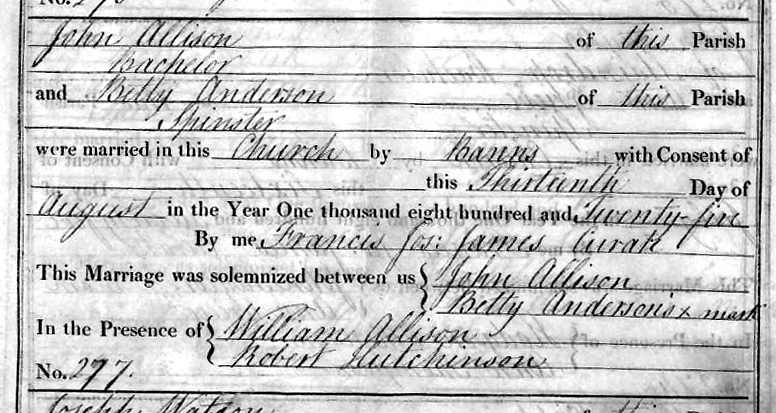 John Allison of this Parish
Bachelor
and Betty Anderson of this Parish
Spinster
were married in this Church by Banns with Consent of
this Thirteenth Day of
August in the Year One thousand eight hundred and Twenty-five
By me Francis Jos: James Curate
This Marriage was solemnized between us { John Allison
Betty Anderson's x mark
In the Presence of { William Allison
Robert Hutchinson
No. 277.
Joseph Watson of this Parish